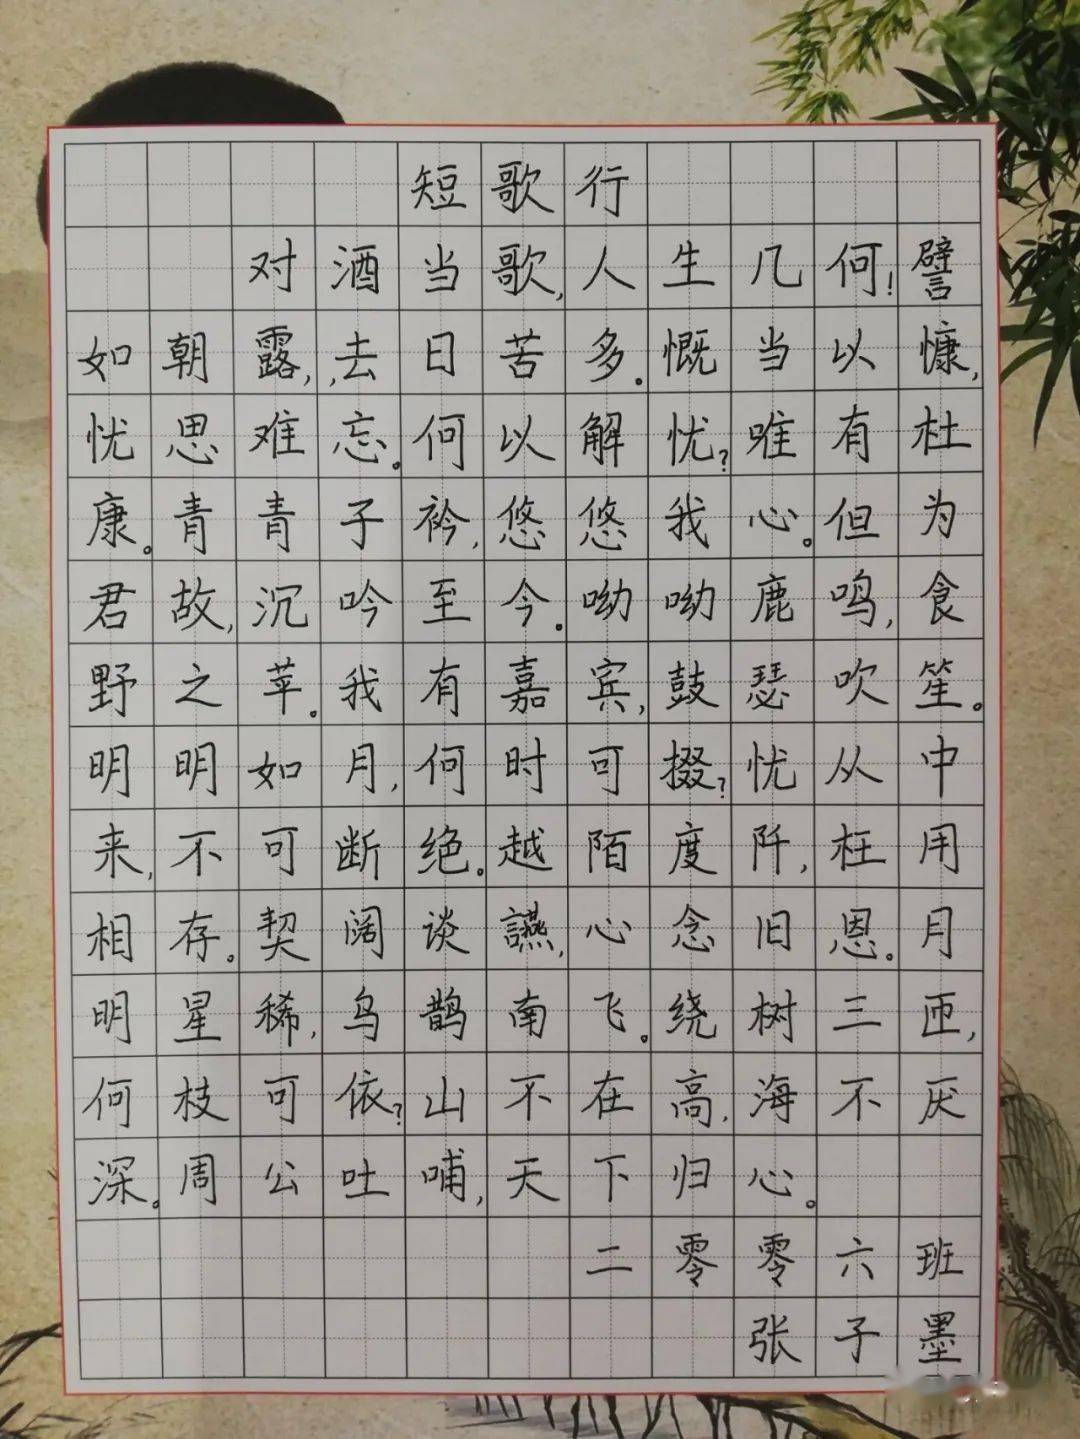 短歌行
对酒当歌,人生几何!譬
如朝露,,去日苦多。慨当以慷,
忧思难忘。何以解忧?唯有杜
康。青青子衿,悠悠我心。但为
君故,沉吟至今。呦呦鹿鸣,食
野之苹。我有嘉宾,鼓瑟吹笙。
明明如月,何时可掇?忧从中
来,不可断绝。越陌度阡,枉用
相存。契阔谈讌,心念旧恩。月
明星稀,乌鹊南飞。绕树三匝,
何枝可依?山不在高,海不厌
深。周公吐哺,天下归心。
二零零六班
张子墨